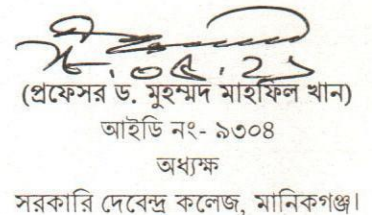 ০৫.২১
(প্রফেসর ড. মুহম্মদ মাহফিল খান)
আইডি নং- ৯৩০৪
অধ্যক্ষ
সরকারি দেবেন্দ্র কলেজ, মানিকগঞ্জ।